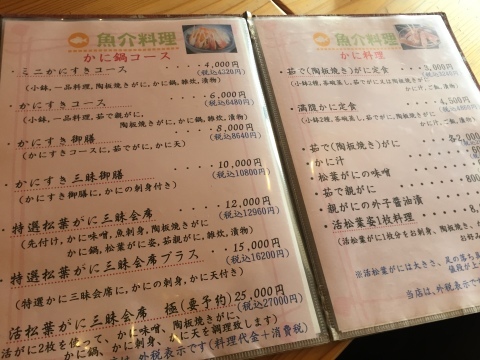 魚介料理
かに鍋コース
・ミニかにすきコース 4,000円
(税込4320円)
(小鉢、一品料理、陶板焼きがに、かに鍋、雑炊、漬物)
・かにすきコース 6,000円
(税込6480円)
(小鉢、一品料理、茹で親がに、
陶板焼きがに、かに鍋、雑炊、漬物)
・かにすき御膳 8,000円
(税込8640円)
(かにすきコースに、茹でがに、かに天)
・かにすき三昧御膳 10,000円
(税込10800円)
(かにすき御膳に、かにの刺身付き)
・特選松葉がに三昧会席 12,000円
(税込12960円)
(先付け、かに味噌、魚刺身、陶板焼きがに
かに鍋、松葉がに姿、茹親がに、雑炊、漬物)
・特選松葉がに三昧会席プラス 15,000円
(税込16200円)
(特選かに三昧会席に、かにの刺身、かに天付き)
活松葉がに三昧会席 極(要予約) 25,000円
(税込27000円)
活がに2枚を使って、かに味噌、陶板焼きがに、
かに鍋、かに刺身、かに天を調理致します)
外税表示です(料理代金+消費税)
魚介料理
かに料理
・茹で(陶板焼き)がに定食 3,000円
(小鉢2種、茶碗蒸し、茹でがに又は陶板焼きがに
かに汁、ご飯、漬物)
・満腹かに定食 4,500円
(小鉢2種、茶碗蒸し、茹でがに、陶板焼きがに
かに汁、ご飯、漬物)
・茹で(陶板焼き)がに 各2,00
・かに汁
・松葉がにの味噌
・茹で親がに 80
・親がにの外子醤油漬
・活松葉姿1枚料理 8,
(活松葉がに1枚分をお刺身、陶板焼き、
お好み
※活松葉がには大きさ、足の落ち具
値段が上
当店は、外税表示です